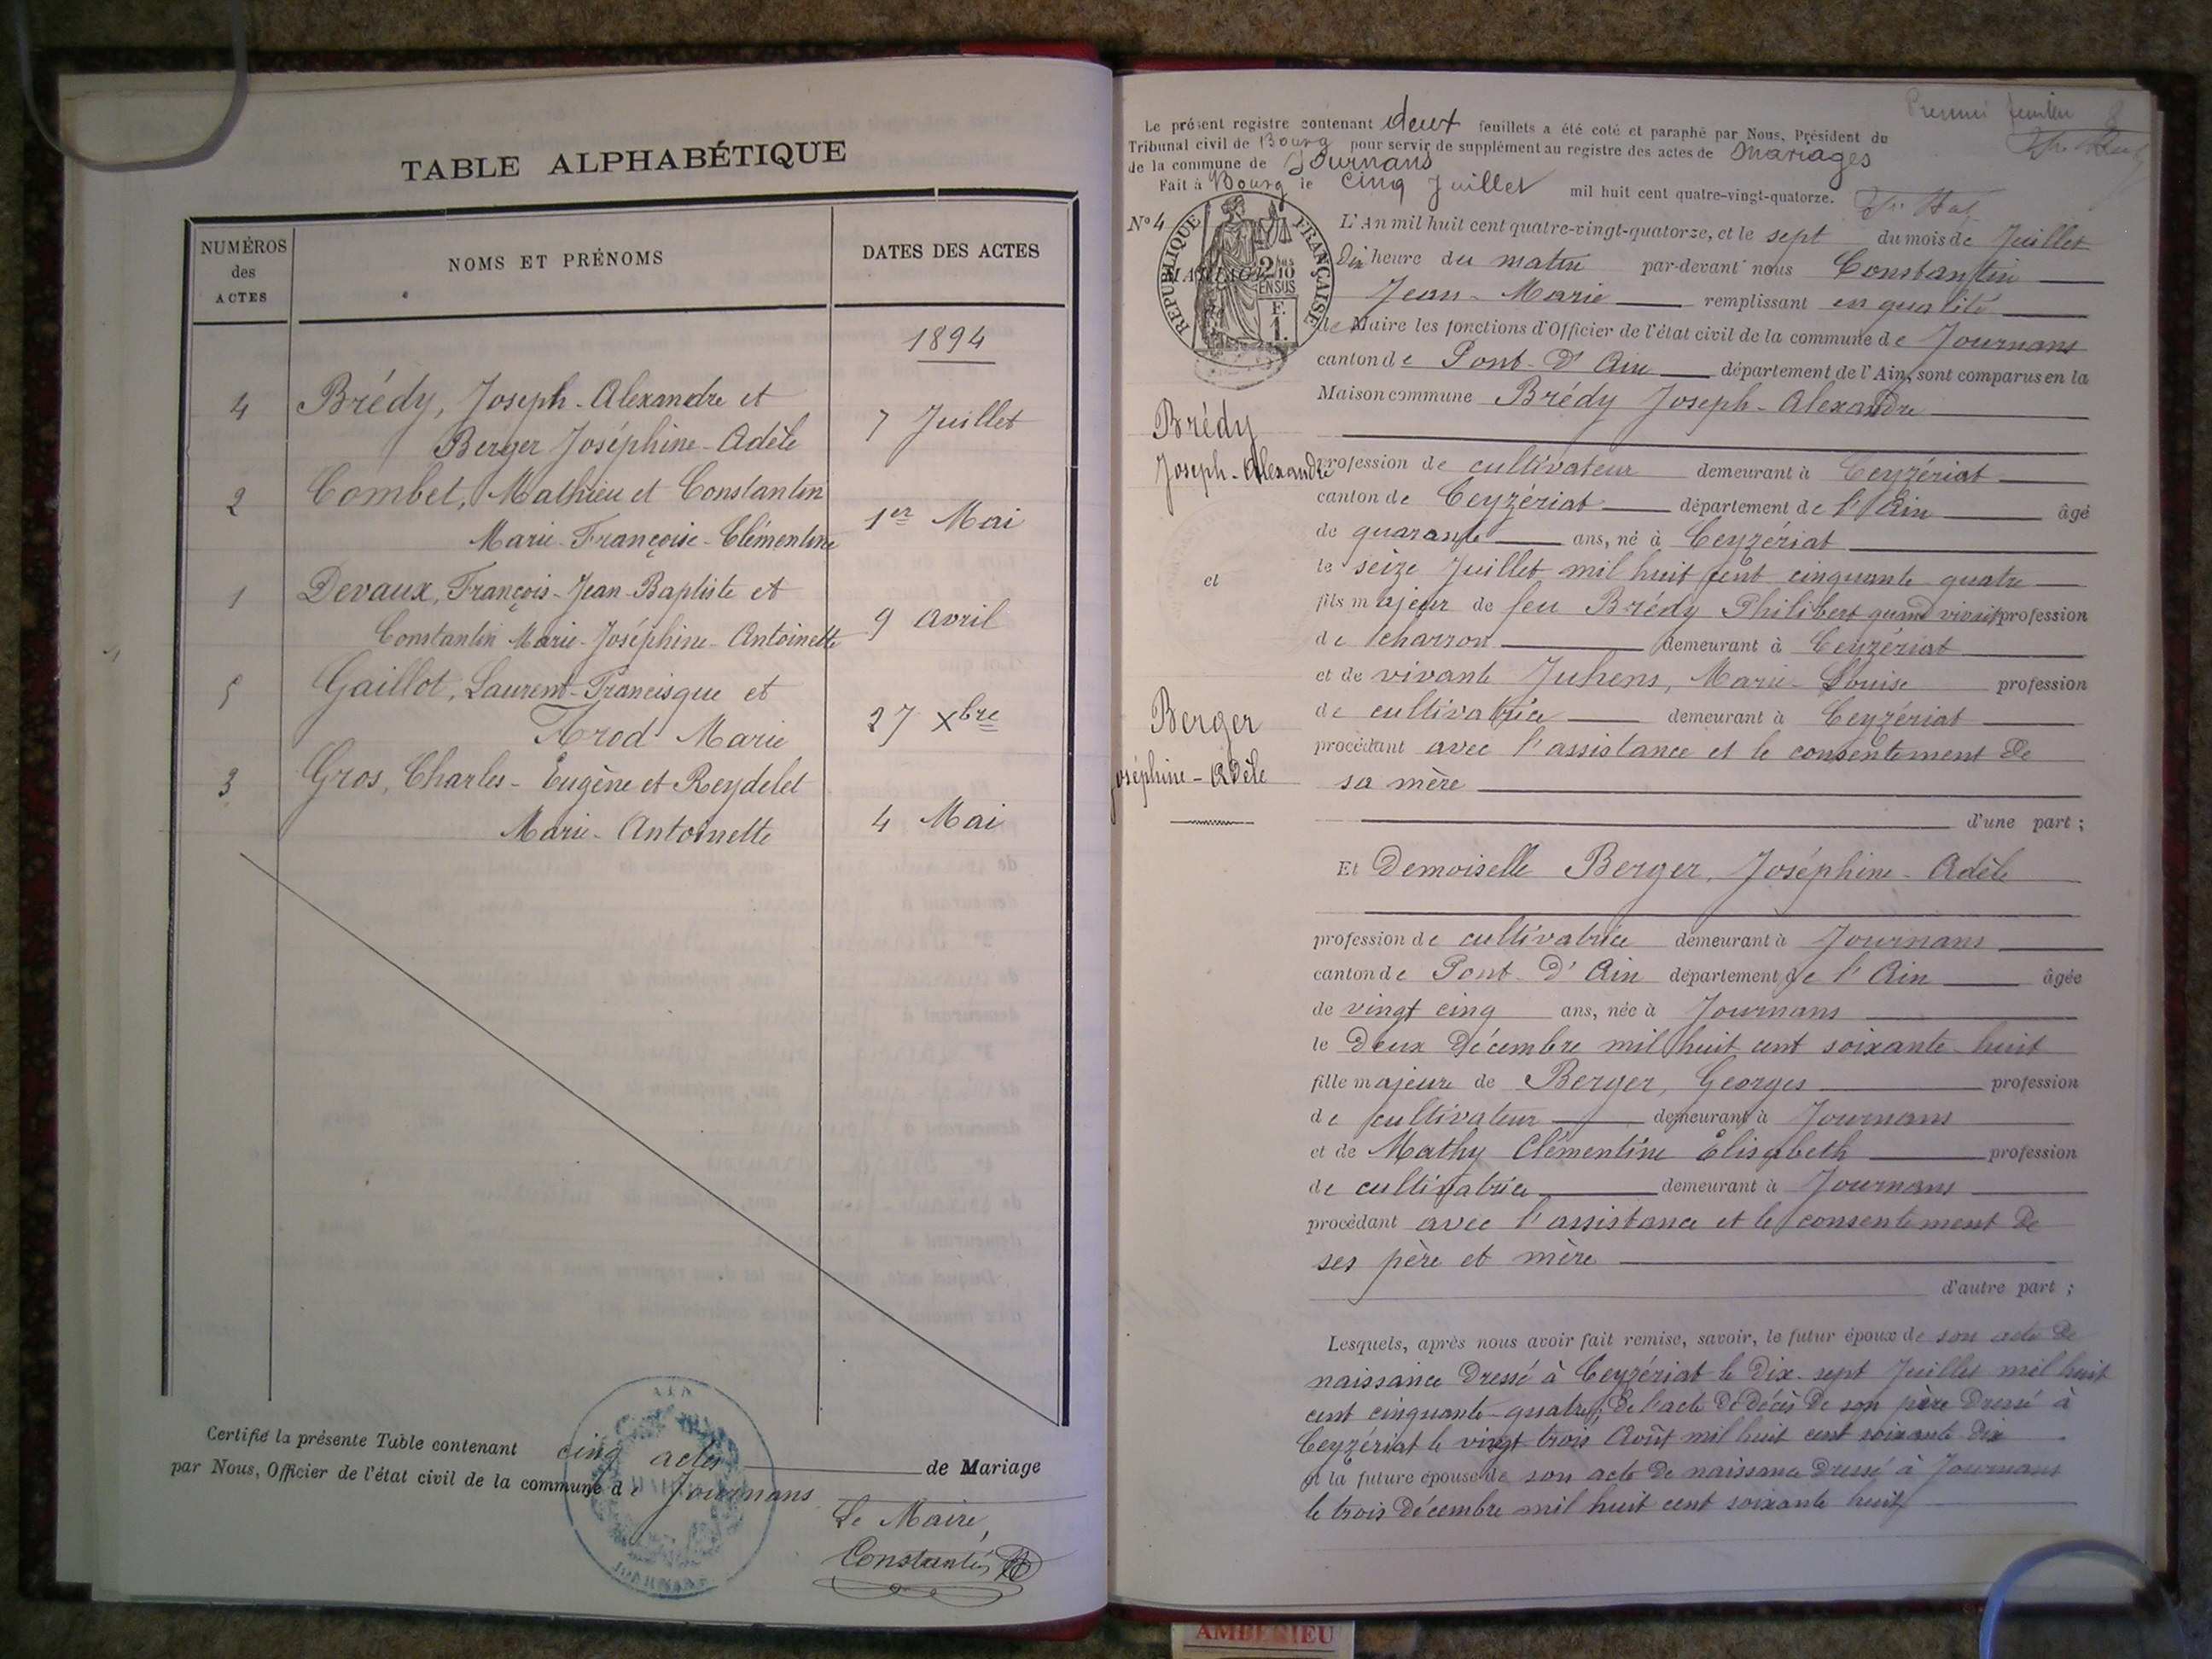 TABLE ALPHABÉTIQUE
NUMÉROS
des
ACTES
NOMS ET PRÉNOMS
DATES DES ACTES
1894
4 Brédy, Joseph-Alexandre et
Berger Joséphine-Adèle 7 Juillet
2 Combet, Mathieu et Constantin
Marie-Françoise-Clémentine 1er Mai
1 Devaux, François-Jean-Baptiste et
Constantin Marie-Joséphine-Antoinette 9 Avril
5 Gaillot, Laurent-Francisque et
Arod Marie 27 Xbre
3 Gros, Charles-Eugène et Reydelet
Marie-Antoinette 4 Mai
Certifié la présente Table contenant cinq actes de Mariage
par Nous, Officier de l'état civil de la commune de Journans
Le Maire,
Constantin
AIN
MAIRIE
JOURNANS
Premier feuillet
Le présent registre contenant deux feuillets a été coté et paraphé par Nous, Président du
Tribunal civil de Bourg pour servir de supplément au registre des actes de Mariages
de la commune de Journans
Fait à Bourg le cinq Juillet mil huit cent quatre-vingt-quatorze.
No 4
RÉPUBLIQUE FRANÇAISE
MARIAGE
2/10
EN SUS
F.
1.
L'An mil huit cent quatre-vingt-quatorze, et le sept du mois de Juillet
Dix heure du matin par-devant nous Constantin
Jean-Marie remplissant en qualité
de Maire les fonctions d'Officier de l'état civil de la commune de Journans
canton de Pont-d'Ain département de l'Ain, sont comparus en la
Maison commune Brédy Joseph-Alexandre
Brédy
Joseph-Alexandre
profession de cultivateur demeurant à Ceyzériat
canton de Ceyzériat département de l'Ain âgé
de quarante ans, né à Ceyzériat
et
le seize Juillet mil huit cent cinquante quatre
fils majeur de feu Brédy Philibert quand vivait profession
de charron demeurant à Ceyzériat
et de vivante Juhens, Marie-Louise profession
de cultivatrice demeurant à Ceyzériat
Berger
Joséphine-Adèle
procédant avec l'assistance et le consentement de
sa mère
d'une part ;
Et Demoiselle Berger, Joséphine-Adèle
profession de cultivatrice demeurant à Journans
canton de Pont-d'Ain département de l'Ain âgée
de vingt cinq ans, née à Journans
le deux Décembre mil huit cent soixante huit
fille majeure de Berger, Georges profession
de cultivateur demeurant à Journans
et de Mathy Clémentine Elisabeth profession
de cultivatrice demeurant à Journans
procédant avec l'assistance et le consentement de
ses père et mère
d'autre part ;
Lesquels, après nous avoir fait remise, savoir, le futur époux de son acte de
naissance dressé à Ceyzériat le dix-sept Juillet mil huit
cent cinquante-quatre, de l'acte de décès de son père dressé à
Ceyzériat le vingt trois Août mil huit cent soixante dix
et la future épouse de son acte de naissance dressé à Journans
le trois Décembre mil huit cent soixante huit
AMBERIEU